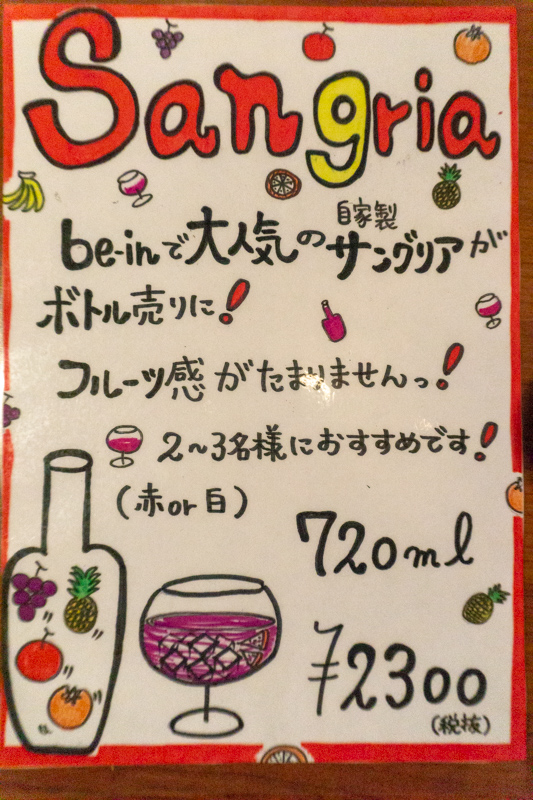 Sangria
be-inで大人気の自家製サングリアが
ボトル売りに!
フルーツ感がたまりませんっ!
2〜3名様におすすめです!
(赤or白)
720ml
¥2300
(税抜)